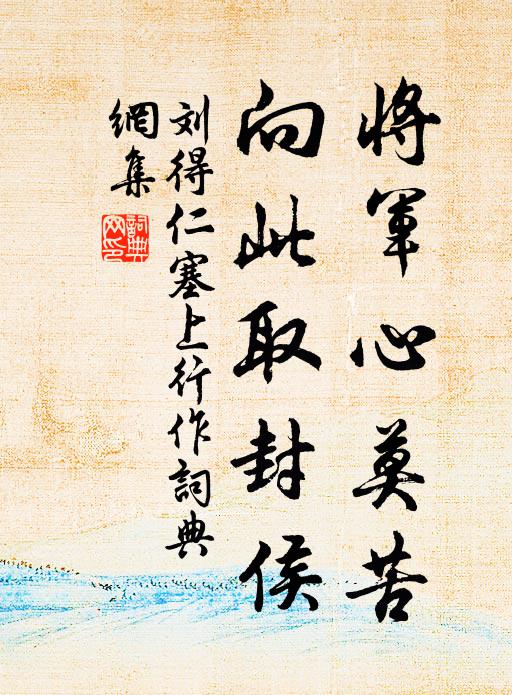 將軍心莫苦
向此取封侯
刘得仁塞上行作詞典
網集
詞典
网印